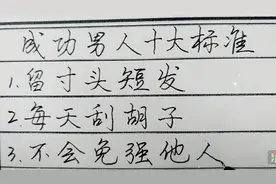 成功男人十大标准
1.留寸头短发
2.每天刮胡子
3.不会免强他人